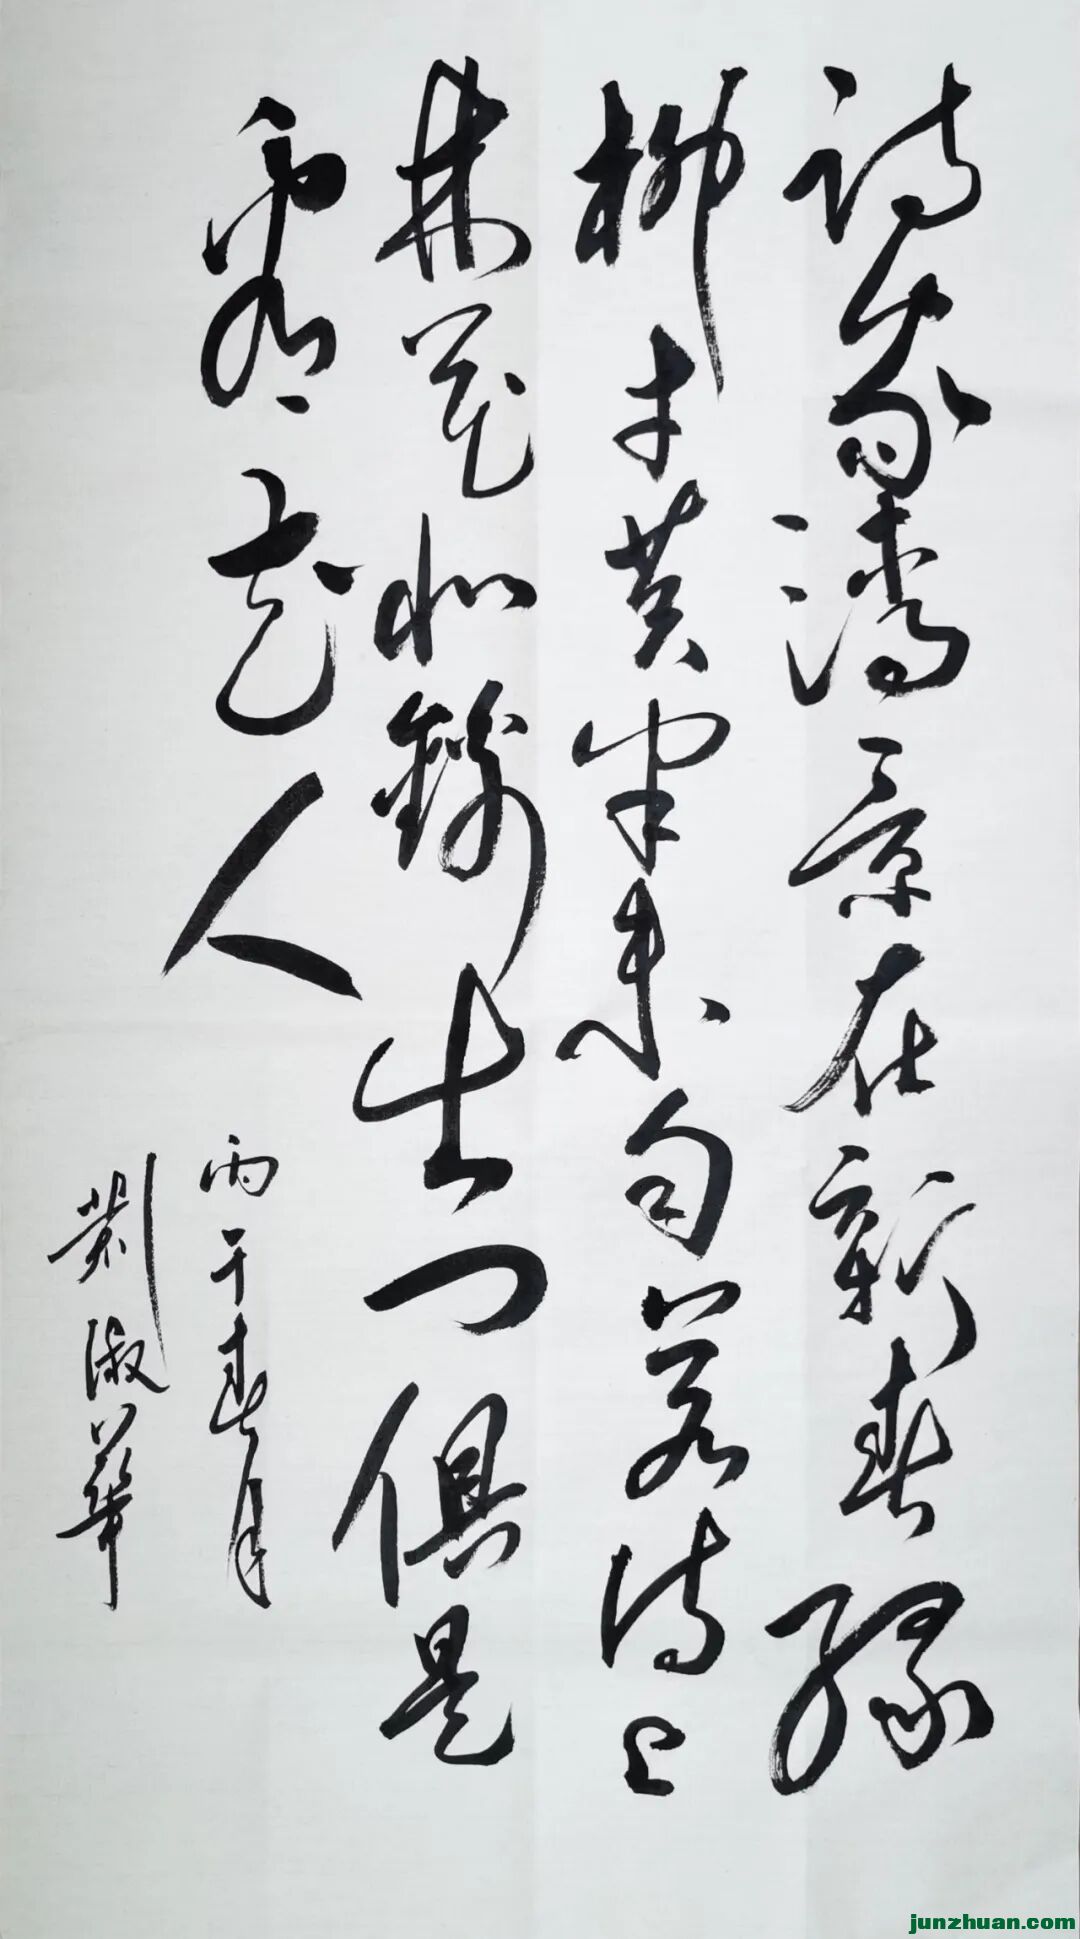 诗家清景在新春绿
柳才黄半未匀若待上
林花似錦出门俱是
看花人
丙午春月
劉淑華
junzhuan.com